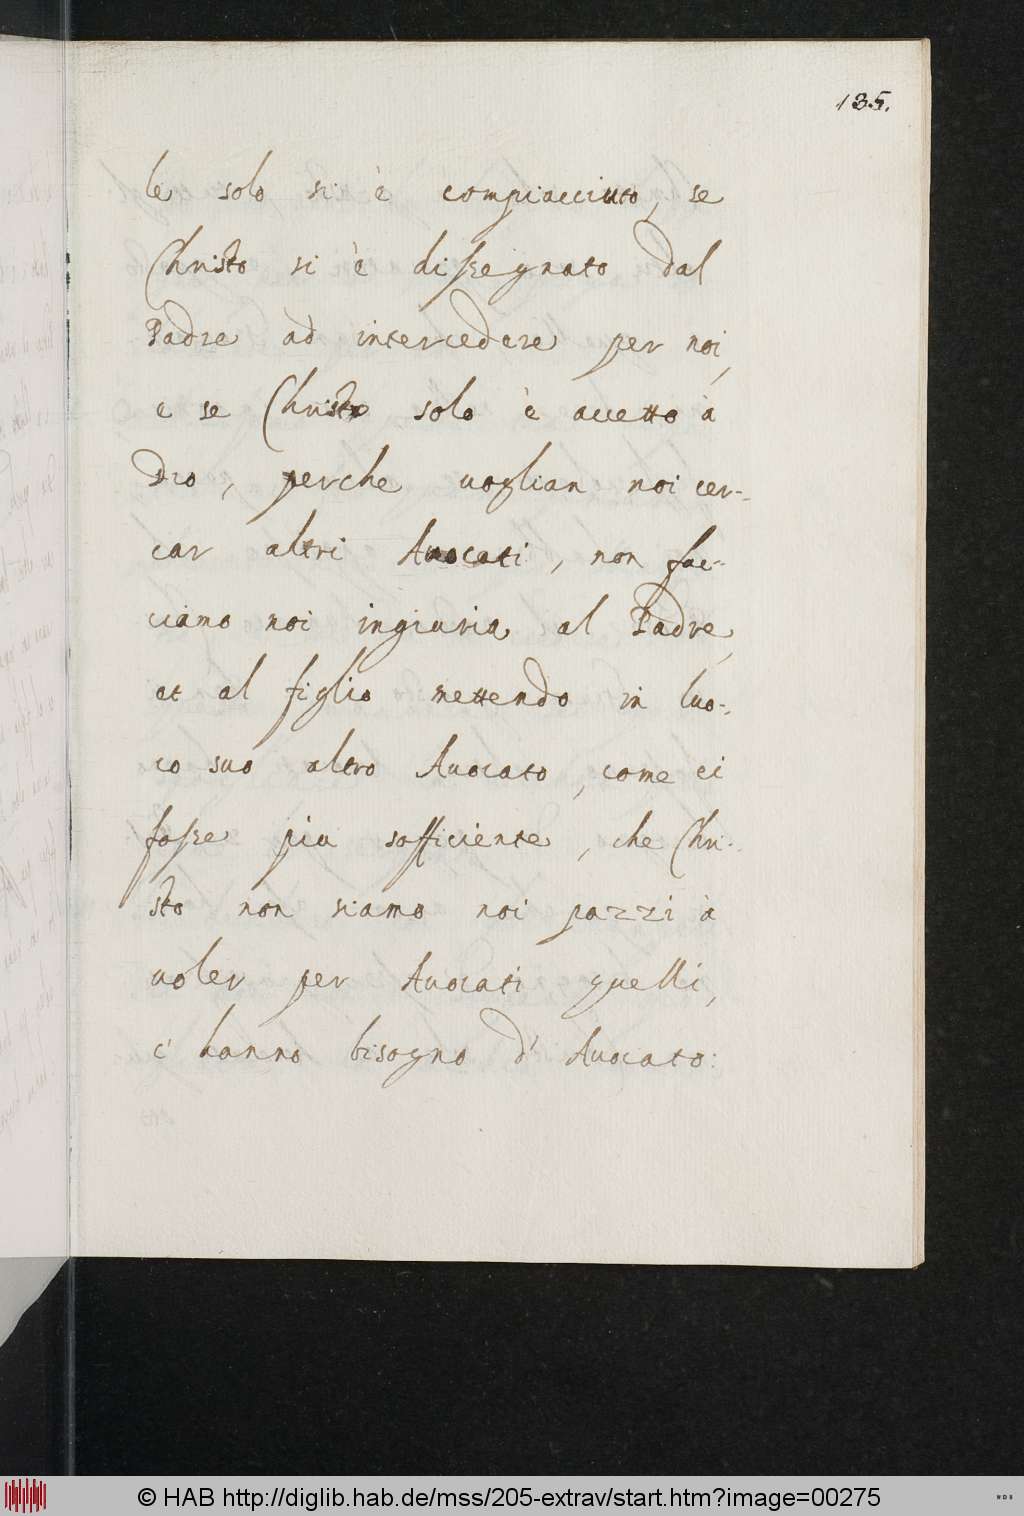 135.
le solo si è compiacciuto, se
Christo si è dissegnato dal
Padre ad intercedere per noi,
e se Christo solo è accetto à
Dio, perche uoglian noi cer-
car altri Auocati, non fac-
ciamo noi ingiuria al Padre,
et al figlio mettendo in luo-
co suo altro Auocato, come ci
fosse piu sofficiente, che Chri-
sto non siamo noi pazzi à
uoler per Auocati quelli,
c' hanno bisogno d' Auocato:
© HAB http://diglib.hab.de/mss/205-extrav/start.htm?image=00275